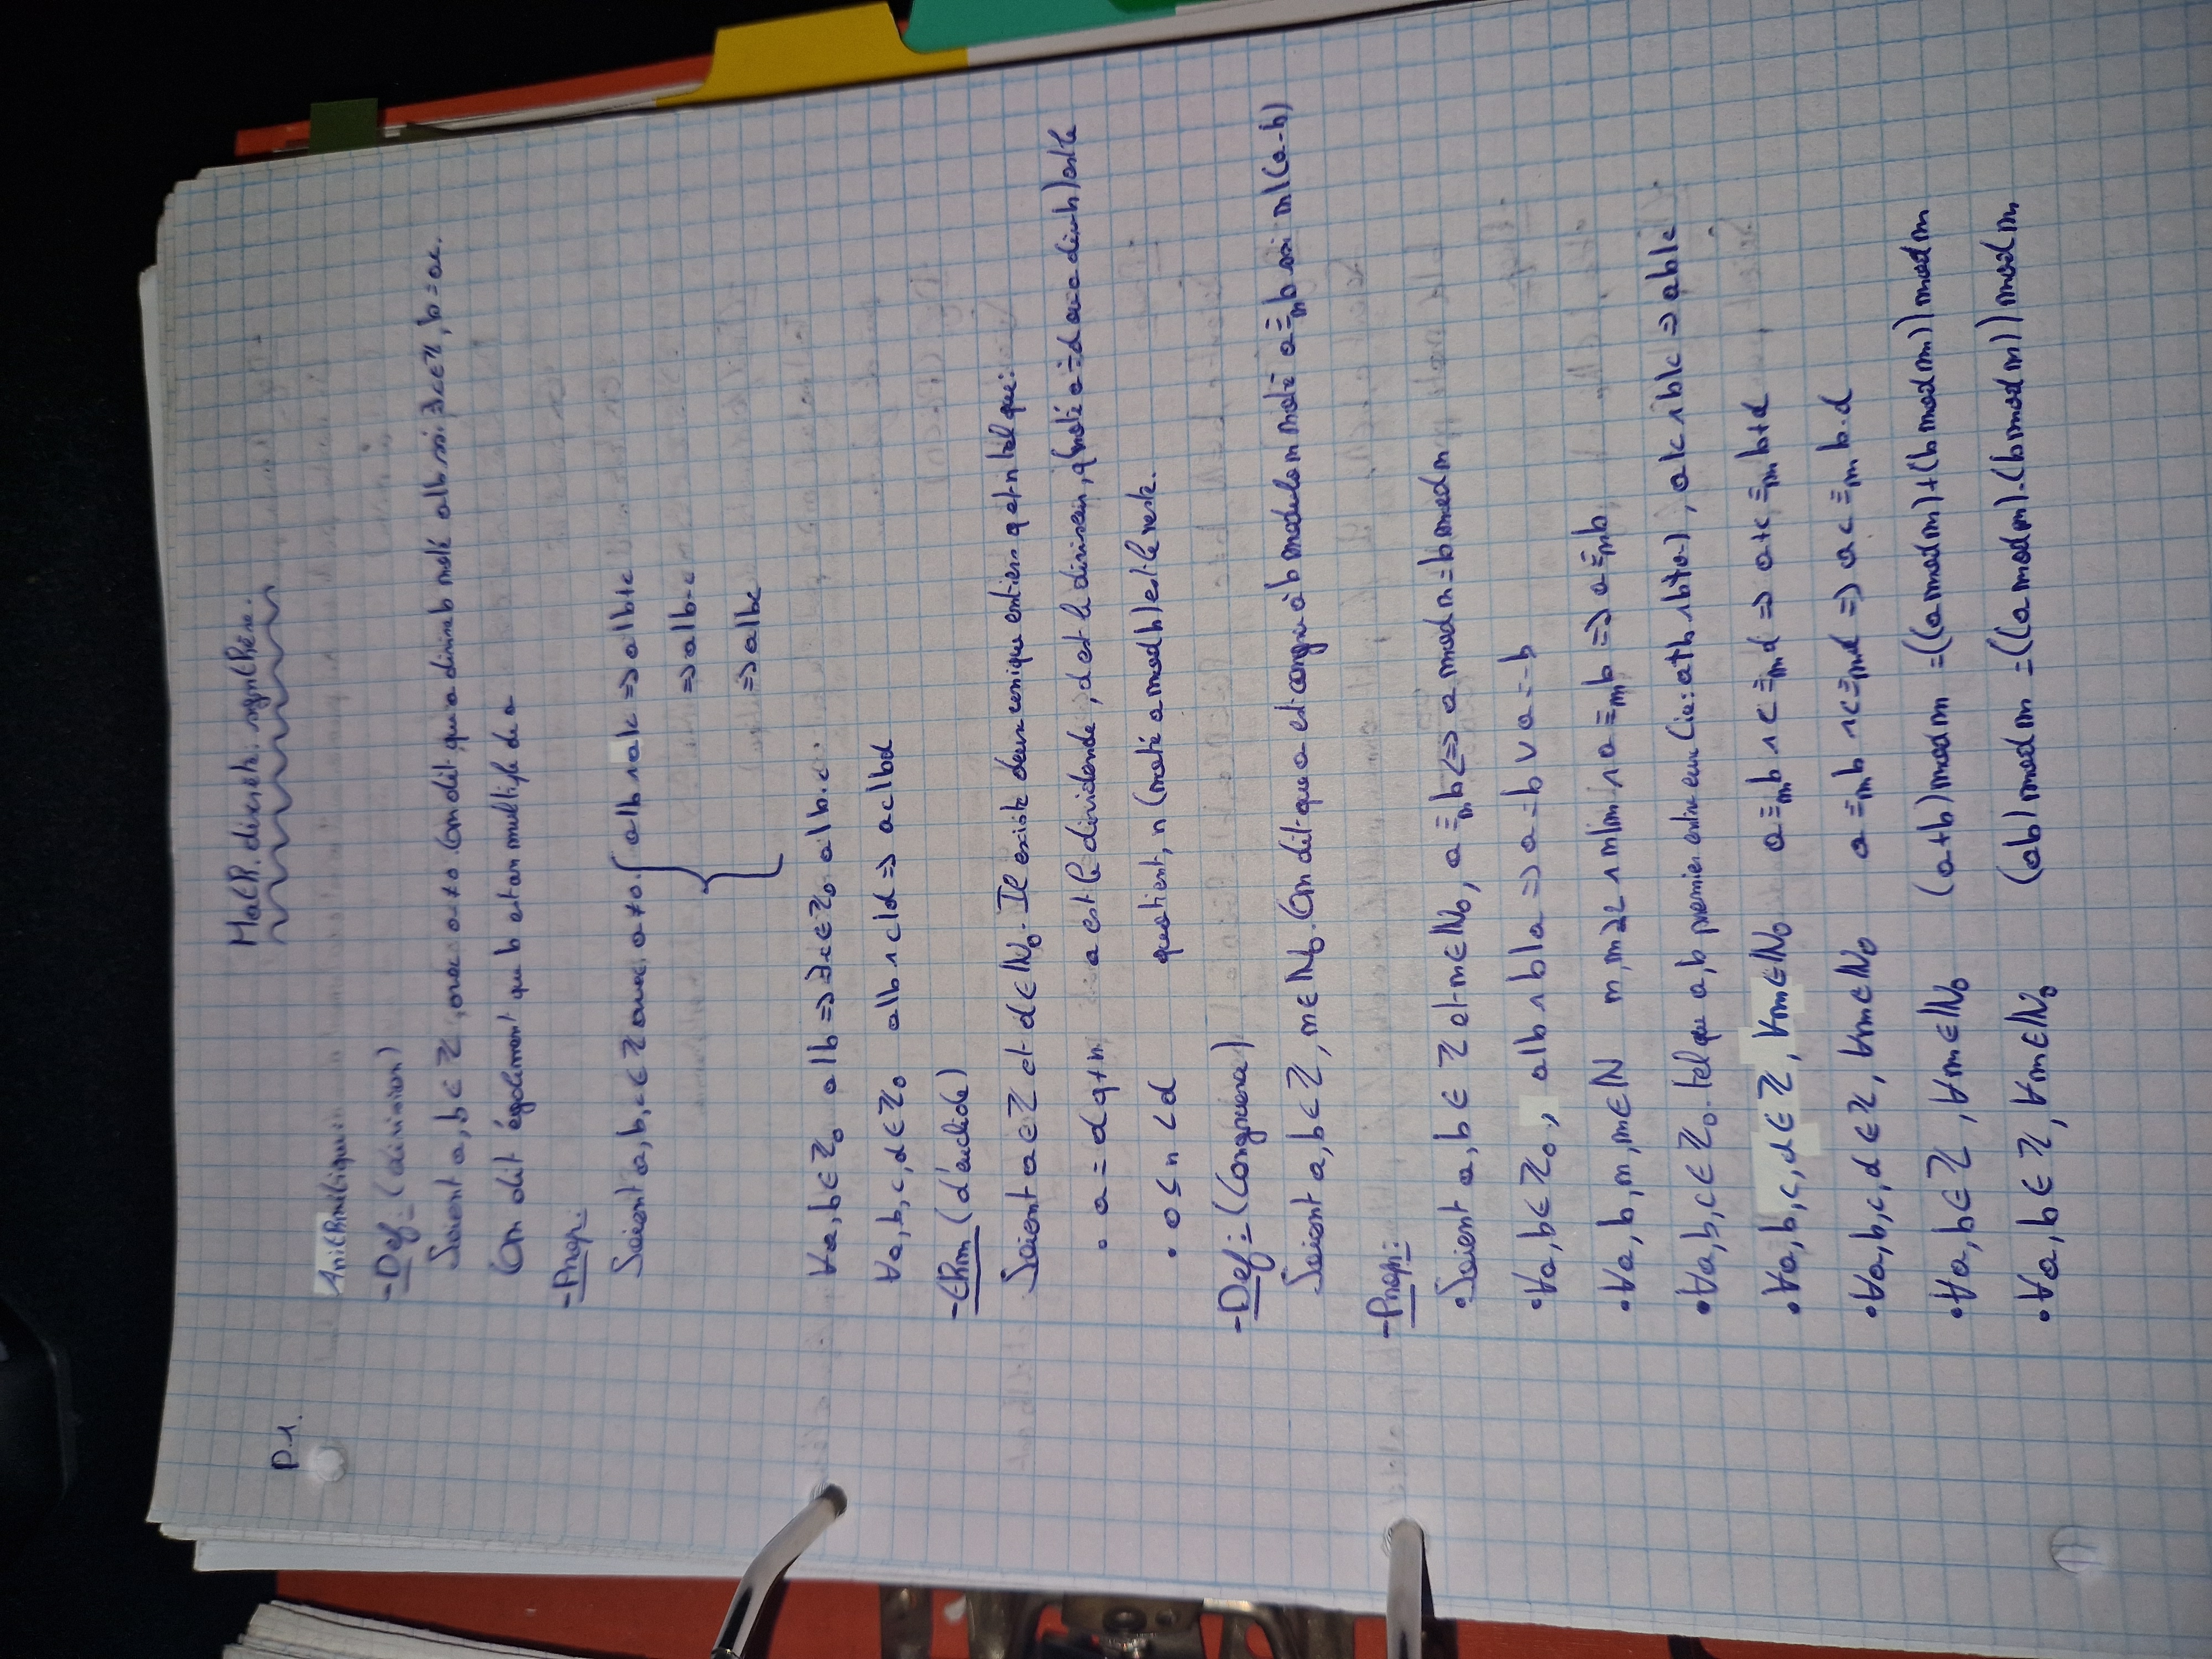 Math. discrète. synthèse.
P.1.
Arithmétique:
- Def: (division)
Soient a, b ∈ ℤ, avec a ≠ 0. On dit que a divise b noté a|b ssi ∃c∈ℤ, b = ac.
On dit également que b est un multiple de a
- Prop.
Soient a, b, c ∈ ℤ avec a ≠ 0. { a|b ∧ a|c => a|b+c
=> a|b-c
=> a|bc
∀a, b ∈ ℤ₀ a|b => ∃c∈ℤ₀ a|b.c
∀a, b, c, d ∈ ℤ₀ a|b ∧ c|d => ac|bd
- Thm (d'euclide)
Soient a ∈ ℤ et d ∈ ℕ₀. Il existe deux unique entiers q et r tel que:
• a = dq+r a est le dividende, d est le diviseur, q (noté a÷d ou a div b) est le
• 0 ≤ r < d quotient, r (noté a mod b) est le reste.
- Def: (Congruence)
Soient a, b ∈ ℤ, m ∈ ℕ₀. On dit que a est congru à b modulo m noté a ≡ₘ b ssi m|(a-b)
- Prop:
• Soient a, b ∈ ℤ et m ∈ ℕ₀, a ≡ₘ b <=> a mod m = b mod m
• ∀a, b ∈ ℤ₀, a|b ∧ b|a => a = b ∨ a = -b
• ∀a, b, n, m ∈ ℕ n, m ≥ 2 ∧ n|m ∧ a ≡ₘ b => a ≡ₙ b
• ∀a, b, c ∈ ℤ₀. tel que a, b premier entre eux (ie: a∤b ∧ b∤a), a|c ∧ b|c => ab|c
• ∀a, b, c, d ∈ ℤ, ∀m ∈ ℕ₀ a ≡ₘ b ∧ c ≡ₘ d => a+c ≡ₘ b+d
• ∀a, b, c, d ∈ ℤ, ∀m ∈ ℕ₀ a ≡ₘ b ∧ c ≡ₘ d => ac ≡ₘ b.d
• ∀a, b ∈ ℤ, ∀m ∈ ℕ₀ (a+b) mod m = ((a mod m) + (b mod m)) mod m
• ∀a, b ∈ ℤ, ∀m ∈ ℕ₀ (ab) mod m = ((a mod m).(b mod m)) mod m